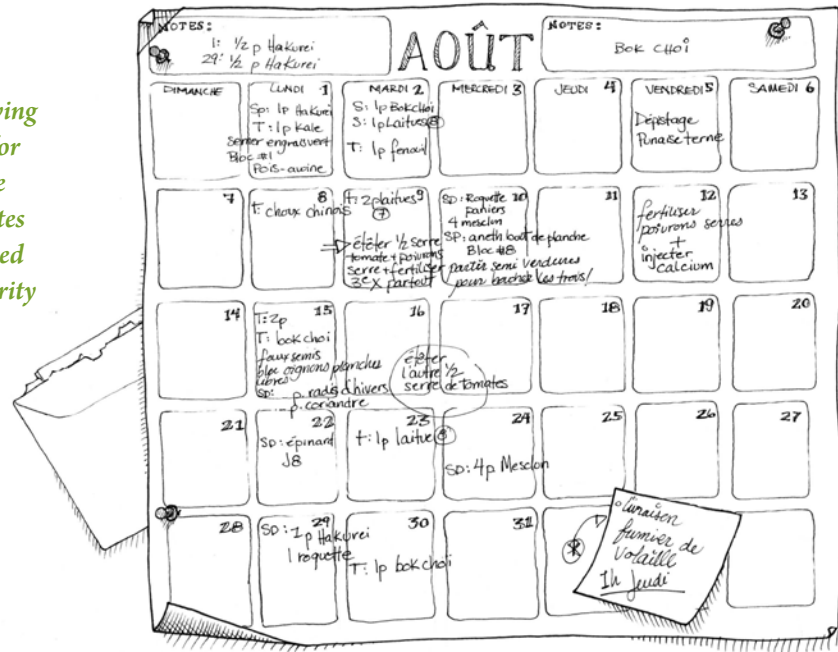 ving
for
e
tes
ed
rity
NOTES:
1: ½ p Hakurei
29: ½ p Hakurei
AOÛT
NOTES:
BOK CHOI
DIMANCHE
LUNDI 1
MARDI 2
MERCREDI 3
JEUDI 4
VENDREDI 5
SAMEDI 6
Sp: 1p Hakurei
T: 1p Kale
semer engrais vert
Bloc #1
Pois-avoine
S: 1p Bokchoi
S: 1p Laitues 8
T: 1p fenouil
Dépistage
Punaise terne
7
8
T: choux chinois
9
T: 2p laitues
7
étêter ½ serre
tomate + poivrons
serre + fertiliser
3e X partout
10
SD: Roquette
paniers
4 mesclun
SP: aneth bout de planche
Bloc #8
partir semi verdures
pour bachée les trois!
11
12
fertiliser
poivrons serres
+
injecter
calcium
13
14
15
T: 2p
T: bok choi
faux semis
bloc oignons planches
libres
SD: p. radis d'hivers
p. coriandre
16
étêter
l'autre ½
serre de tomates
17
18
19
20
21
22
SD: épinard
J8
23
t: 1p laitue 8
24
SD: 4p. Mesclun
25
26
27
28
29
SD: 1p Hakurei
1 roquette
30
T: 1p bok choi
31
Livraison
fumier de
volaille
1h Jeudi